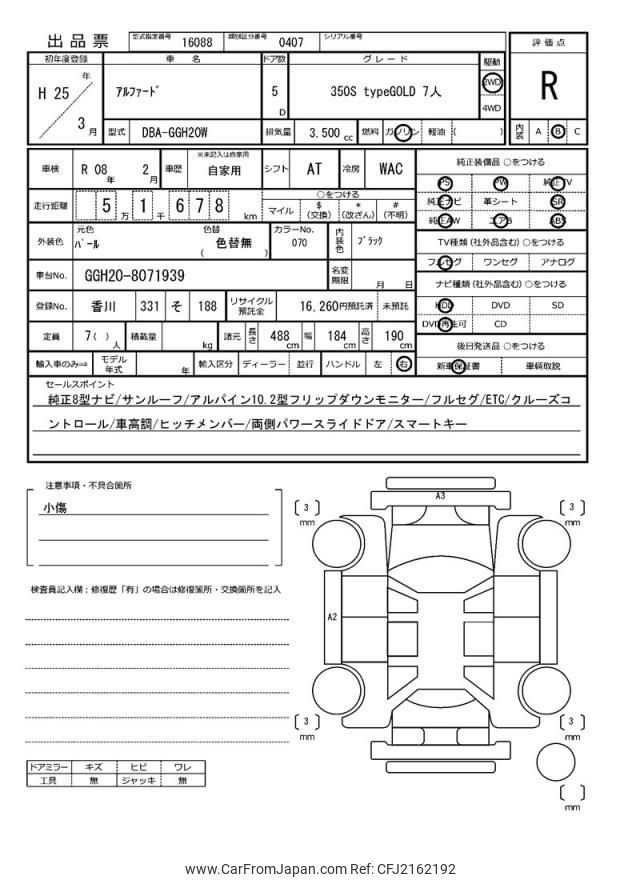 出品票 型式指定番号 16088 類別区分番号 0407 シリアル番号
評価点
R
内装 A B C
初年度登録 車名 ドア数 グレード 駆動
H 25 年 3 月 アルファード 5 D 350S typeGOLD 7人 2WD 4WD
型式 DBA-GGH20W 排気量 3,500 cc 燃料 ガソリン 軽油 ( )
車検 R 08 年 2 月 車歴 ※未記入は自家用 自家用 シフト AT 冷房 WAC
走行距離 5 万 1 千 6 7 8 km ○をつける マイル $(交換) *(改ざん) #(不明)
外装色 元色 パール 色替 ( 色替無 ) カラーNo. 070 内装色 ブラック
車台No. GGH20-8071939 名変期限 月 日
登録No. 香川 331 そ 188 リサイクル預託金 16,260円預託済 未預託
定員 7( )人 積載量 kg 諸元 長さ 488 cm 幅 184 cm 高さ 190 cm
輸入車のみ⇒ モデル年式 年 輸入区分 ディーラー 並行 ハンドル 左 右
純正装備品 ○をつける
PS PW 純正TV
純正ナビ 革シート SR
純正AW エアB ABS
TV種類 (社外品含む) ○をつける
フルセグ ワンセグ アナログ
ナビ種類 (社外品含む) ○をつける
HDD DVD SD
DVD再生可 CD
後日発送品 ○をつける
新車保証書 車輌取説
セールスポイント
純正8型ナビ/サンルーフ/アルパイン10.2型フリップダウンモニター/フルセグ/ETC/クルーズコ
ントロール/車高調/ヒッチメンバー/両側パワースライドドア/スマートキー
注意事項・不具合箇所
小傷
検査員記入欄：修復歴「有」の場合は修復箇所・交換箇所を記入
ドアミラー キズ ヒビ ワレ
工具 無 ジャッキ 無
A3
[ 3 ] mm [ 3 ] mm
A2
[ 3 ] mm [ 3 ] mm
[ ] mm
www.CarFromJapan.com Ref: CFJ2162192